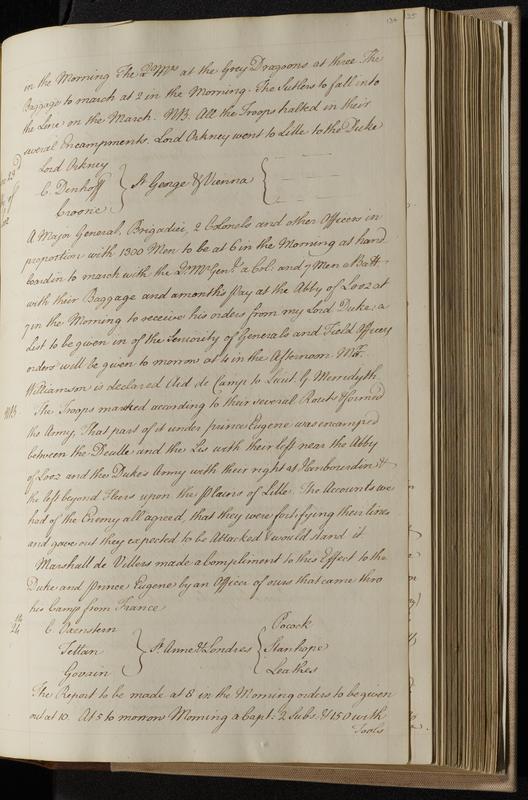 134
135
in the Morning The 2d Mrs at the Grey Dragoons at three The
Baggage to march at 2 in the Morning. The Sutlers to fall into
the Line on the March. NB. All the Troops halted in their
several Encampments. Lord Orkney went to Lille to the Duke
Lord Orkney
C. Denhoff } St George & Vienna {
Croone
A Major General, Brigadier, 2 Colonels and other Officers in
proportion with 1300 Men to be at 6 in the Morning at haud
bourdin to march with the Genl. a Col: and 7 Men a Batt.
with their Baggage and a months Pay at the Abby of Looz at
7 in the Morning to receive his orders from my Lord Duke; a
List to be given in of the Seniority of Generals and Field Officers
orders will be given to morrow at 4 in the Afternoon. Mr.
Williamson is declared Aid de Camp to Lieut. G. Merridyth
NB. The Troops marched according to their several Routs & formed
the Army, That part of it under prince Eugene was encamped
between the Deulle and the Lis with their left near the Abby
of Looz and the Dukes Army with their right at Haubourdin &
the left beyond Fleers upon the Plains of Lille. The Accounts we
had of the Enemy all agreed, that they were fortifying their lines
and gave out they expected to be Attacked & would stand it
Marshall de Villers made a compliment to this Effect to the
Duke and prince Eugene by an Officer of ours that came thro
his Camp from France
C. Oxenstern Pocock
Tettau } St. Anne & Londres { Stanhope
Govain Leathes
The Report to be made at 8 in the Morning orders to be given
out at 10. At 5 to morrow Morning a Capt. 2 Subs. & 150 with
Tools